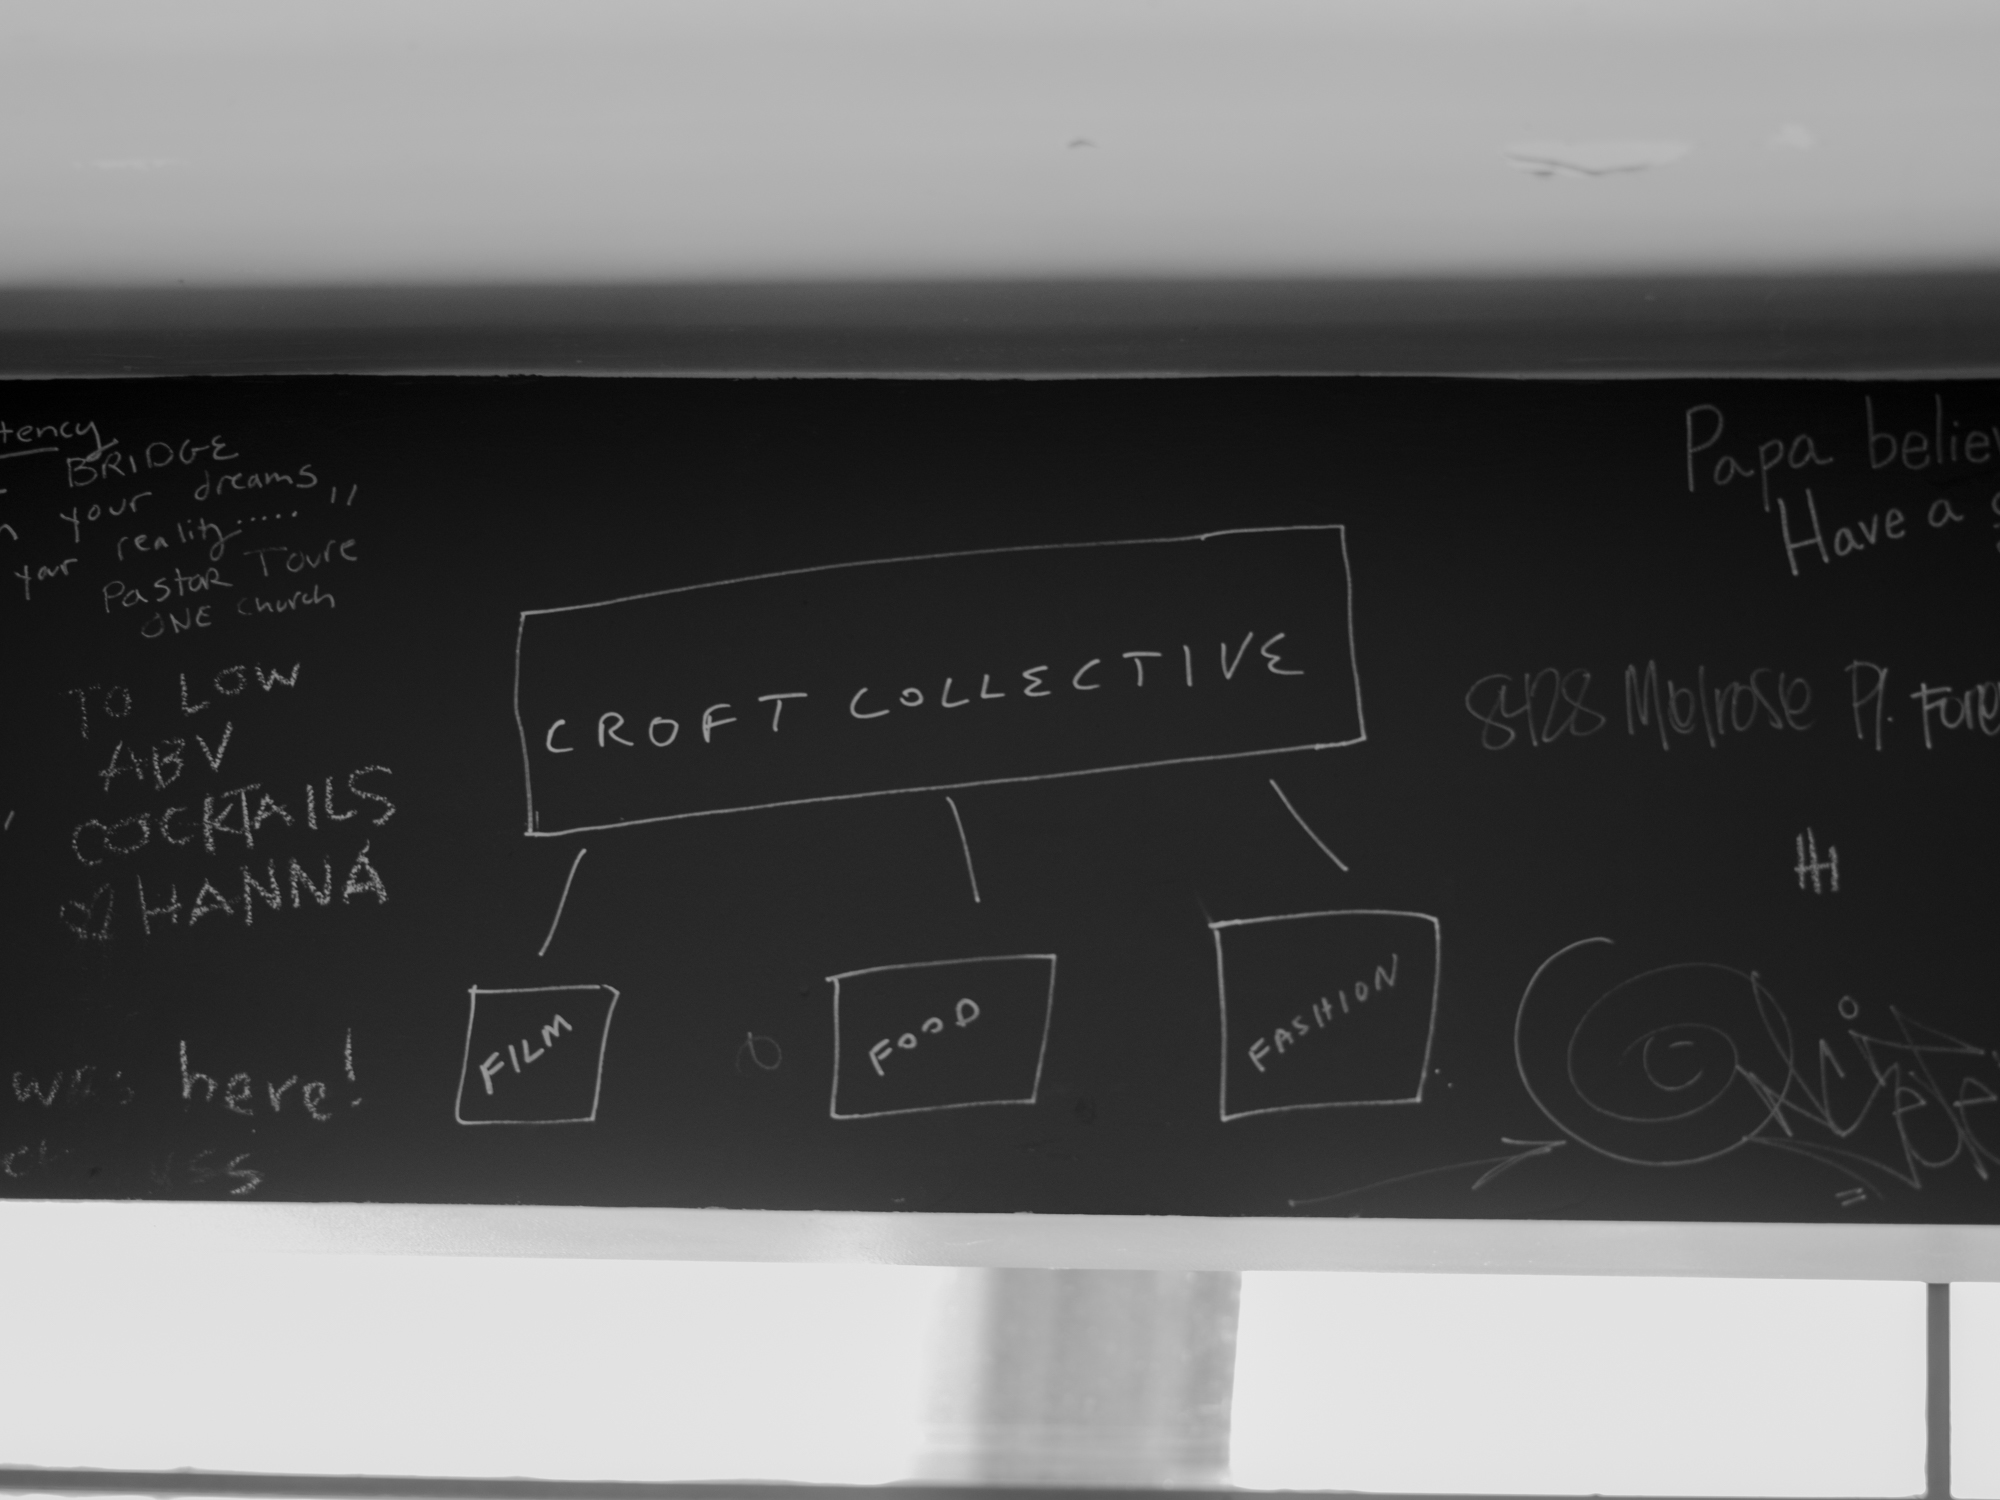 BRIDGE
your dreams
your reality..... "
Pastor Toure
ONE church
TO LOW
ABV
COCKTAILS
♡ HANNA
was here!
CROFT COLLECTIVE
FILM
FOOD
FASHION
Papa
Have a
8428 Melrose Pl.